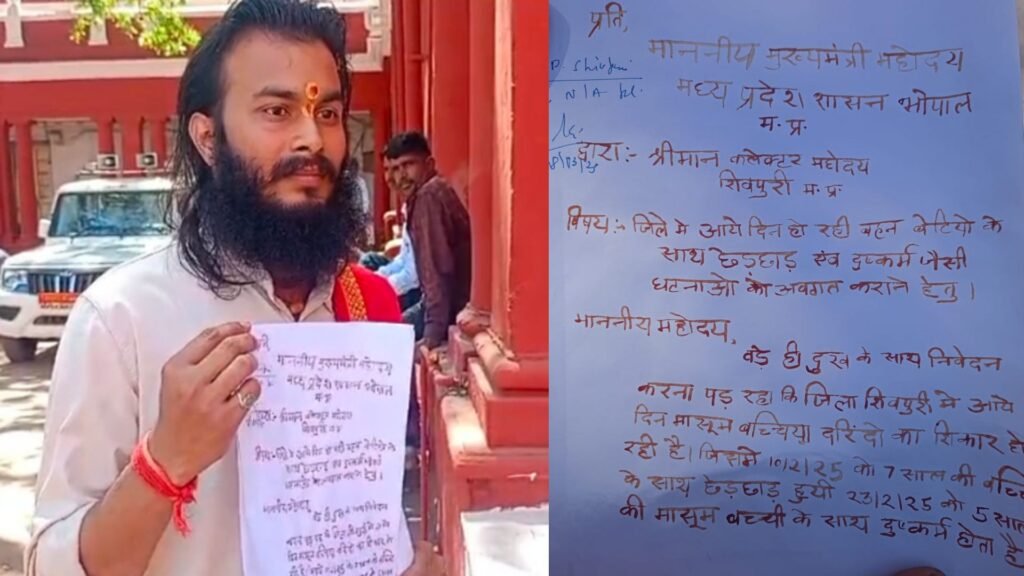 माननीय मुख्यमंत्री महोदय
मध्य प्रदेश शासन भोपाल
म.प्र.
माननीय महोदय,
बड़े ही दुख के साथ निवेदन
प्रति,
माननीय मुख्यमंत्री महोदय
मध्य प्रदेश शासन भोपाल
म. प्र.
N/A
द्वारा:- श्रीमान कलेक्टर महोदय
शिवपुरी म. प्र.
विषय:- जिले मे आये दिन हो रही बहन बेटियो के
साथ छेड़छाड़ एंव दुष्कर्म जैसी
घटनाओ को अवगत कराने हेतु।
माननीय महोदय,
बड़े ही दुख के साथ निवेदन
करना पड़ रहा कि जिला शिवपुरी मे आये
दिन मासूम बच्चिया दरिंदो का शिकार हो
रही है। जिसमे 10/2/25 को 7 साल की
के साथ छेड़छाड़ हुयी 23/2/25 को 5 साल
की मासूम बच्ची के साथ दुष्कर्म होता है